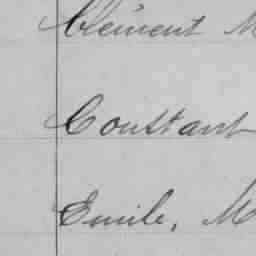 Clément M
Constant
Emile, M